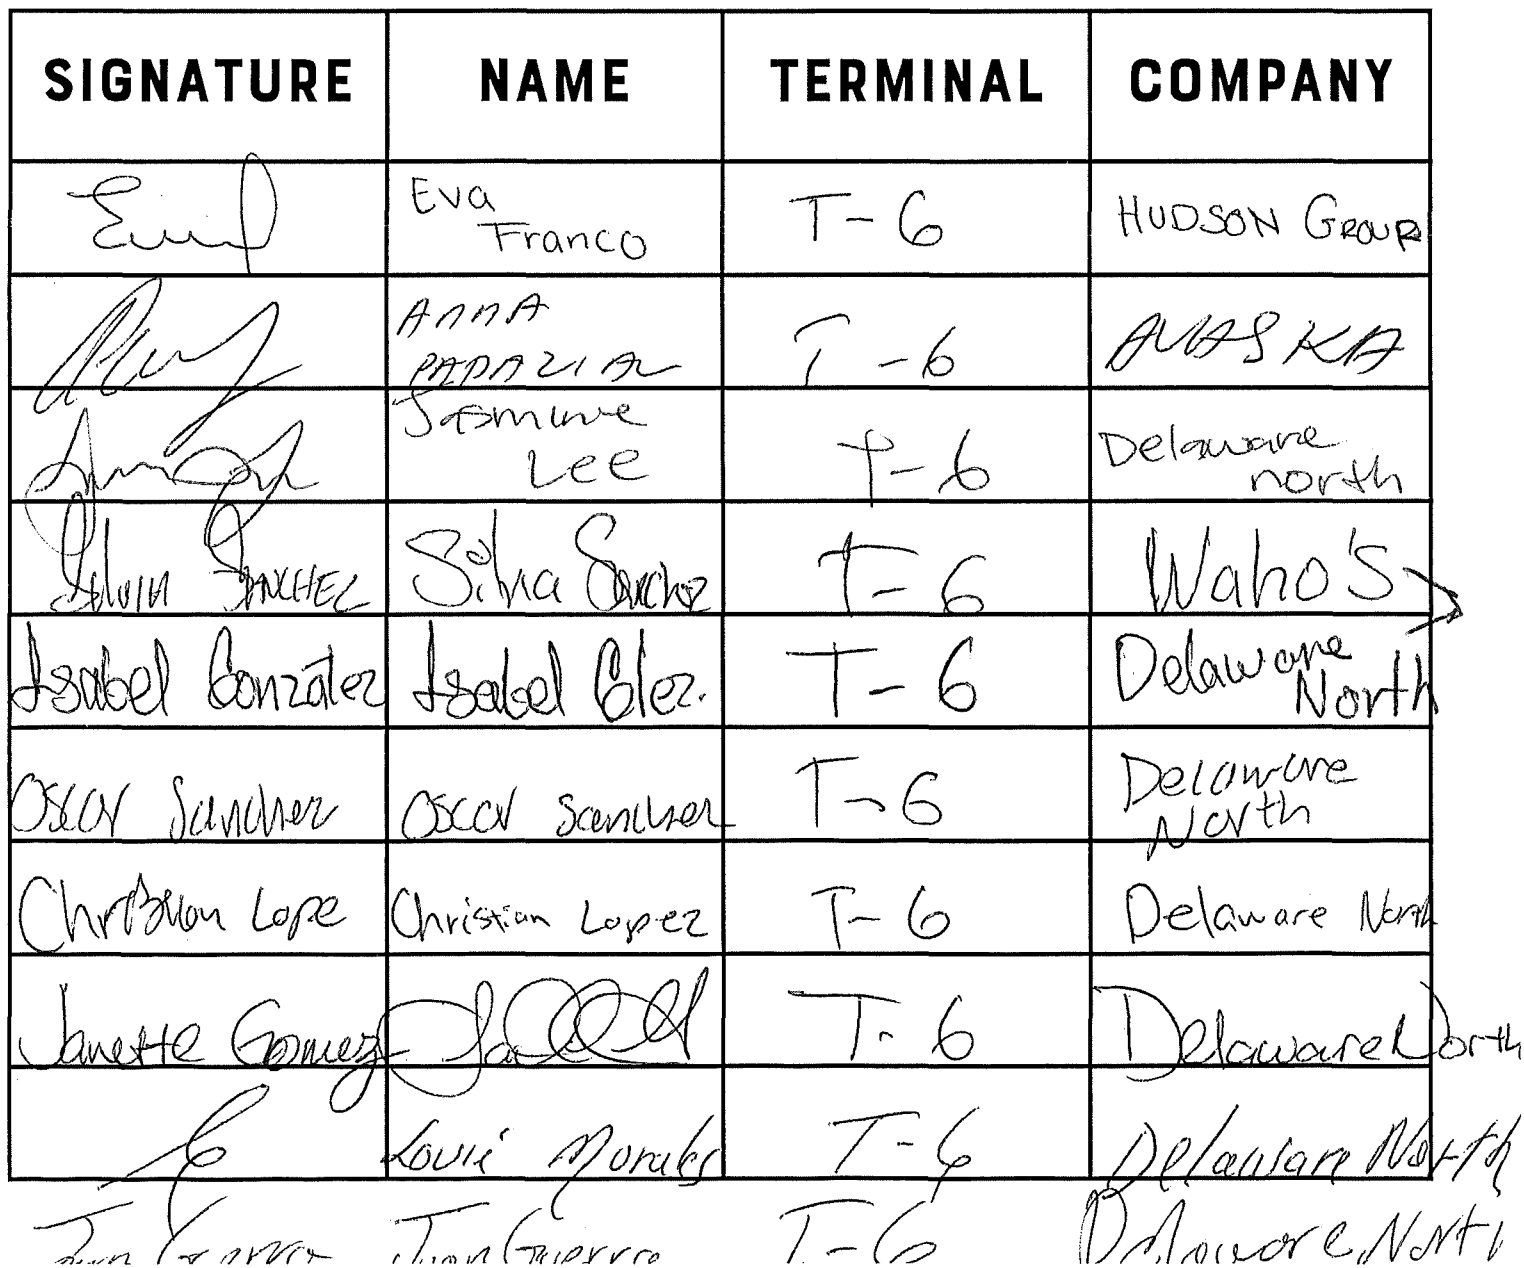 SIGNATURE NAME TERMINAL COMPANY
Eva
Franco T-6 HUDSON GROUP
ANNA
PAPAZIAN T-6 ALASKA
Jasmine
Lee T-6 Delaware
north
Silvia SANCHEZ Silvia Sanchez T-6 Waho's
Isabel González Isabel Glez. T-6 Delaware
North
Oscar Sanchez Oscar Sanchez T-6 Delaware
North
Christian Lope Christian Lopez T-6 Delaware North
Janette Gomez T-6 Delaware North
Louie Morales T-6 Delaware North
Juan Guerra Juan Guerra T-6 Delaware North